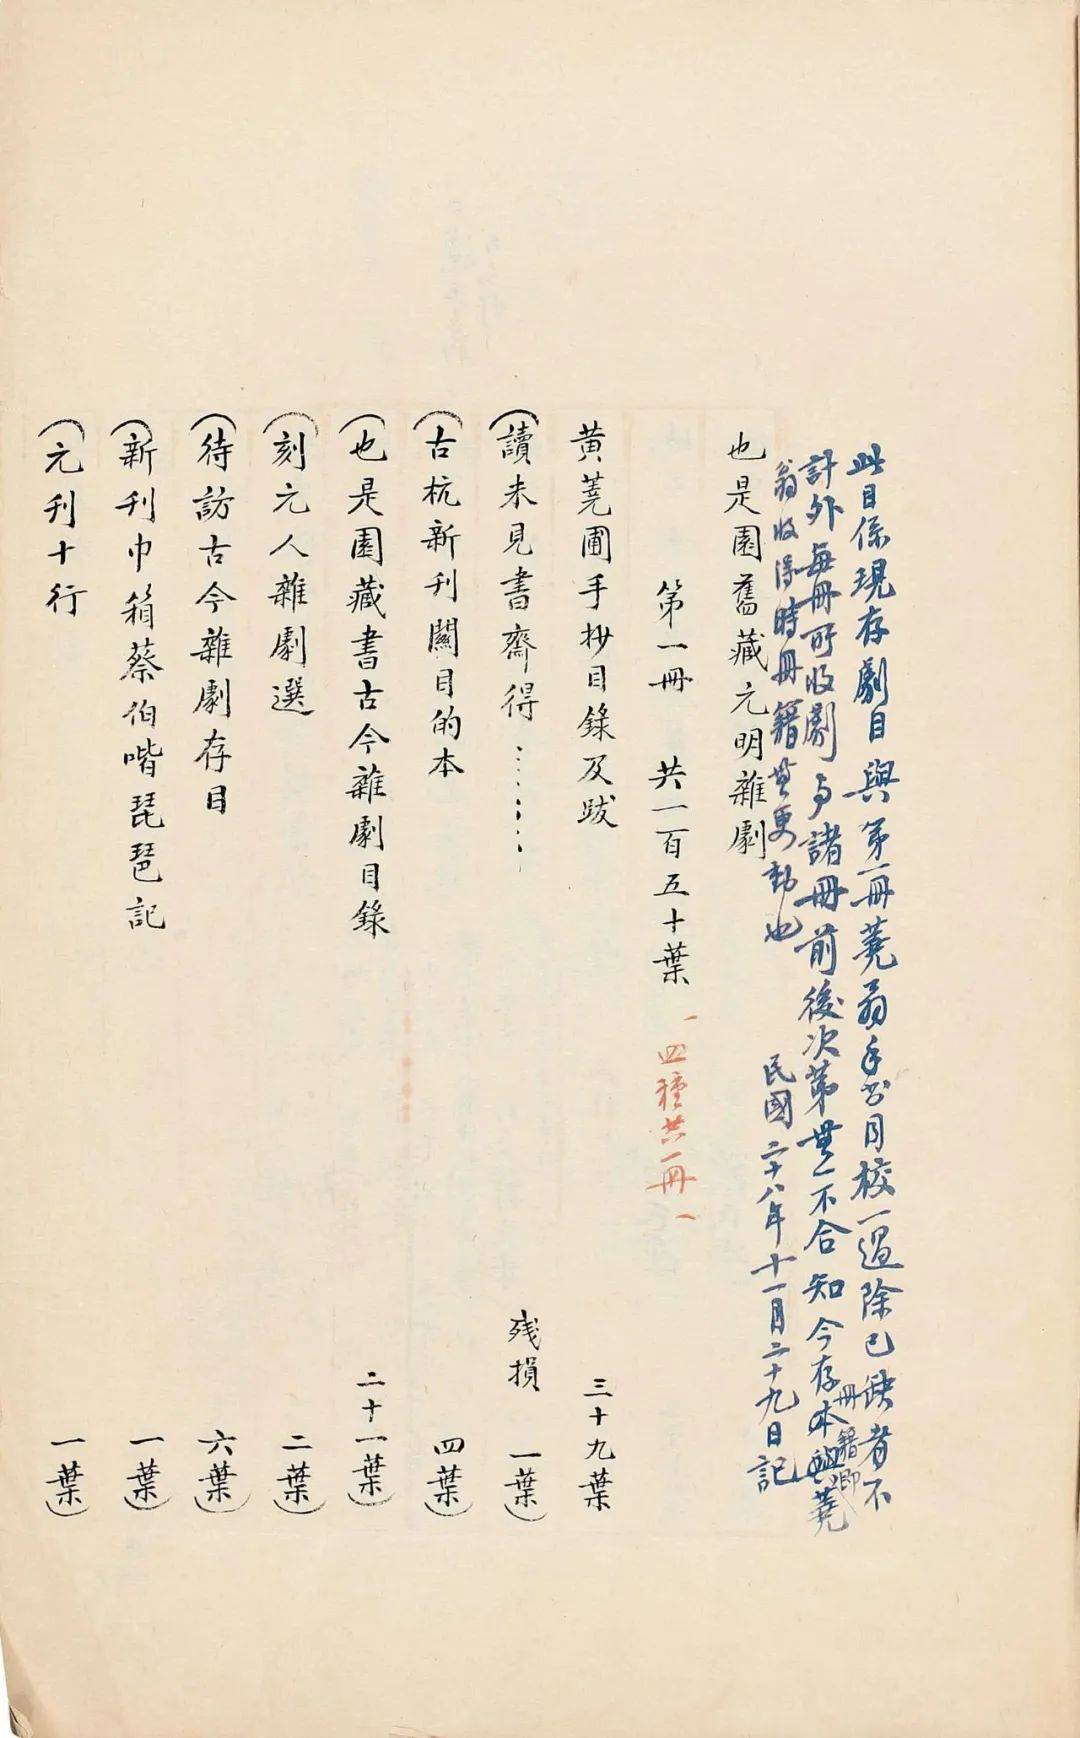 此目係現存劇目與第一冊蕘翁手書目校一過除已缺者不
計外每冊所收劇与諸冊前後次第無一不合知今存本冊籍即蕘
翁收得時冊籍無更動也
民國二十八年十一月二十九日記
也是園舊藏元明雜劇
第一冊 共一百五十葉
四種共一冊
黄蕘圃手抄目錄及跋 三十九葉
(讀未見書齋得…… 残損 一葉)
(古杭新刊關目的本 四葉)
(也是園藏書古今雜劇目錄 二十一葉)
(刻元人雜劇選 二葉)
(待訪古今雜劇存目 六葉)
(新刊巾箱蔡伯喈琵琶記 一葉)
(元刊十行 一葉)